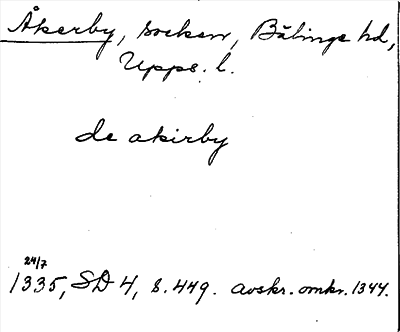 Åkerby, socken, Bälinge hd,
Upps. l.
de akirby
24/7
1335, SD 4, s. 449. avskr. omkr. 1344.